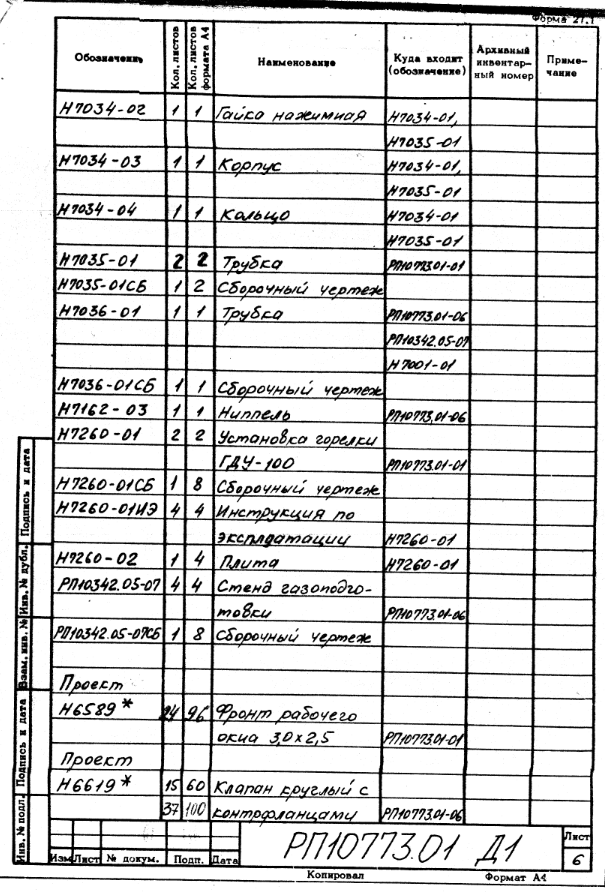 Форма 21.1
Обозначение Кол. листов Кол. листов формата А4 Наименование Куда входит (обозначение) Архивный инвентарный номер Примечание
Н7034-02 1 1 Гайка нажимная Н7034-01,
Н7035-01
Н7034-03 1 1 Корпус Н7034-01,
Н7035-01
Н7034-04 1 1 Кольцо Н7034-01
Н7035-01
Н7035-01 2 2 Трубка РП10773.01-01
Н7035-01СБ 1 2 Сборочный чертеж
Н7036-01 1 1 Трубка РП10773.01-06
РП10342.05-07
Н7001-01
Н7036-01СБ 1 1 Сборочный чертеж
Н7162-03 1 1 Ниппель РП10773.01-06
Н7260-01 2 2 Установка горелки
ГДУ-100 РП10773.01-01
Н7260-01СБ 1 8 Сборочный чертеж
Н7260-01ИЭ 4 4 Инструкция по
эксплуатации Н7260-01
Н7260-02 1 4 Плита Н7260-01
РП10342.05-07 4 4 Стенд газоподго-
товки РП10773.01-06
РП10342.05-07СБ 1 8 Сборочный чертеж
Проект
Н6589* 24 96 Фронт рабочего
окна 3,0х2,5 РП10773.01-01
Проект
Н6619* 15 60 Клапан круглый с
37 100 контрфланцами РП10773.01-06
Инв. № подл. Подпись и дата Взам. инв. № Инв. № дубл. Подпись и дата
Изм Лист № докум. Подп. Дата
РП10773.01 Д1
Лист
6
Копировал Формат А4